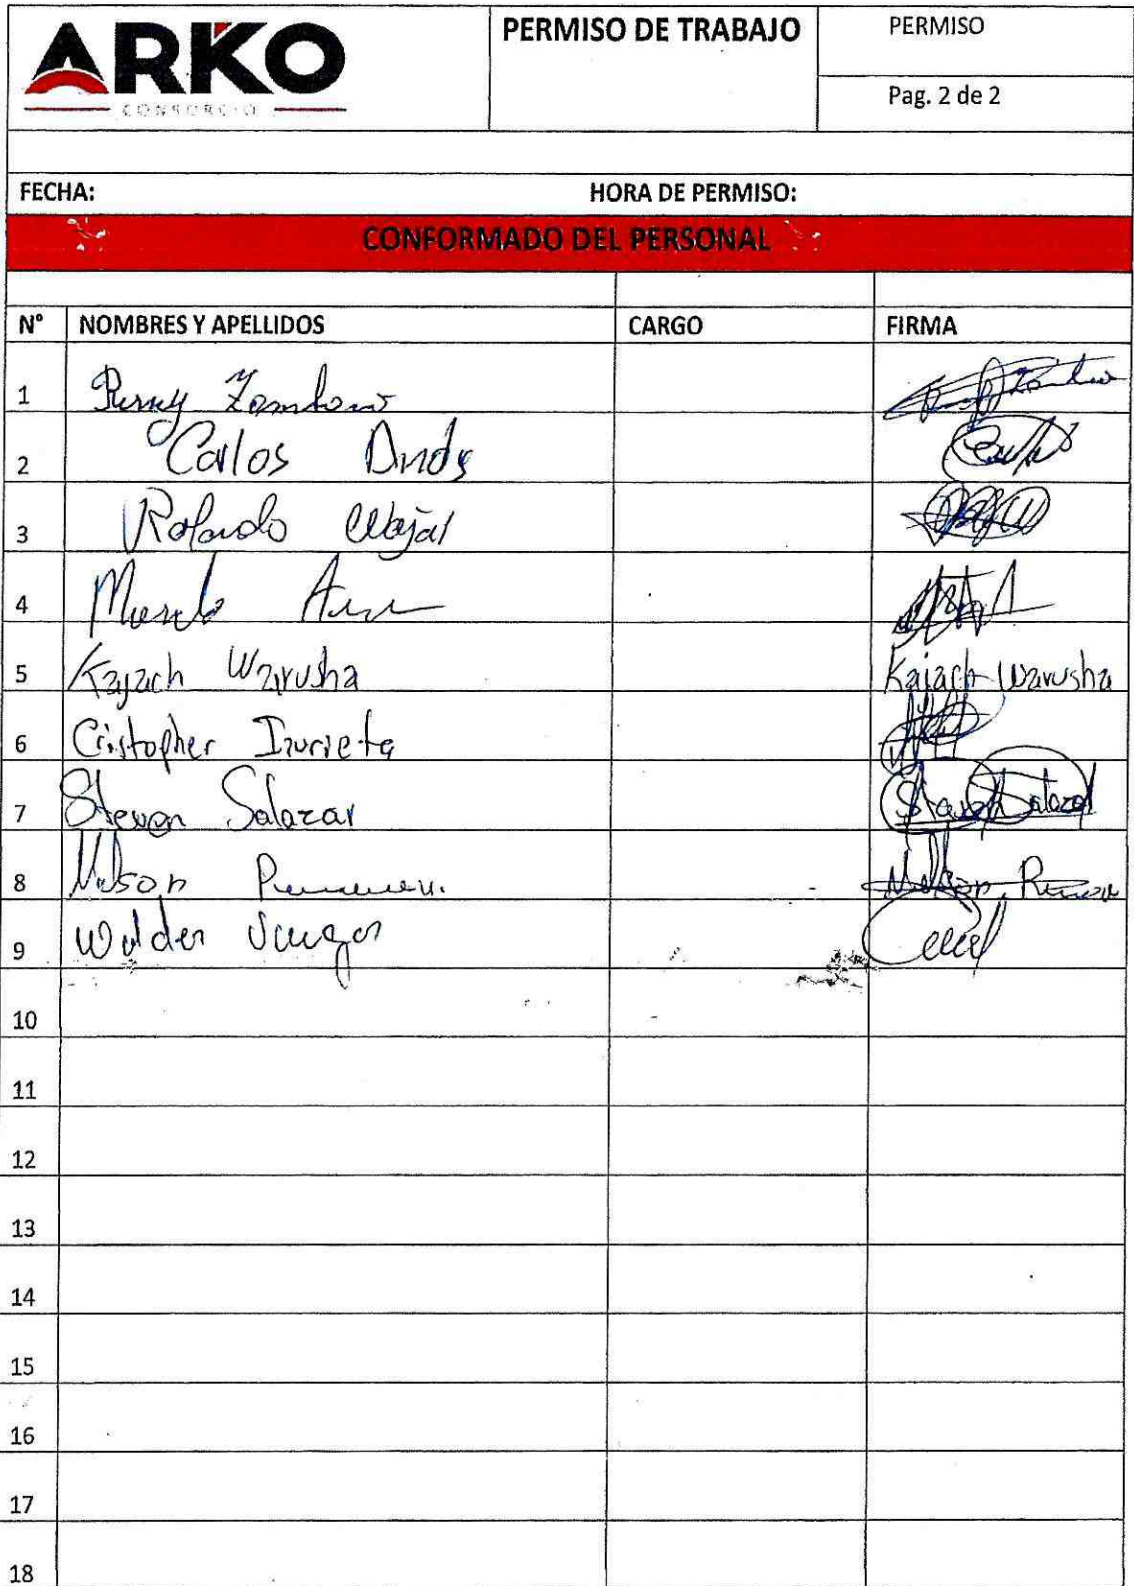 ARKO
CONSORCIO
PERMISO DE TRABAJO
PERMISO
Pag. 2 de 2
FECHA: HORA DE PERMISO:
CONFORMADO DEL PERSONAL
N° NOMBRES Y APELLIDOS CARGO FIRMA
1 Zambrano
2 Carlos Andy
3 Rolando
4
5 Kajach Warusha Kajach Warusha
6 Cristopher Izurieta
7 Steven Salazar Steven Salazar
8 Nelson Nelson
9 Wilder Vargas
10
11
12
13
14
15
16
17
18